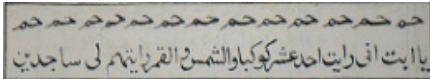 حم حم حم حم حم حم حم حم حم حم حم حم حم
ياابت انى رايت احد عشر كوكبا والشمس و القمر رايتهم لى ساجدين